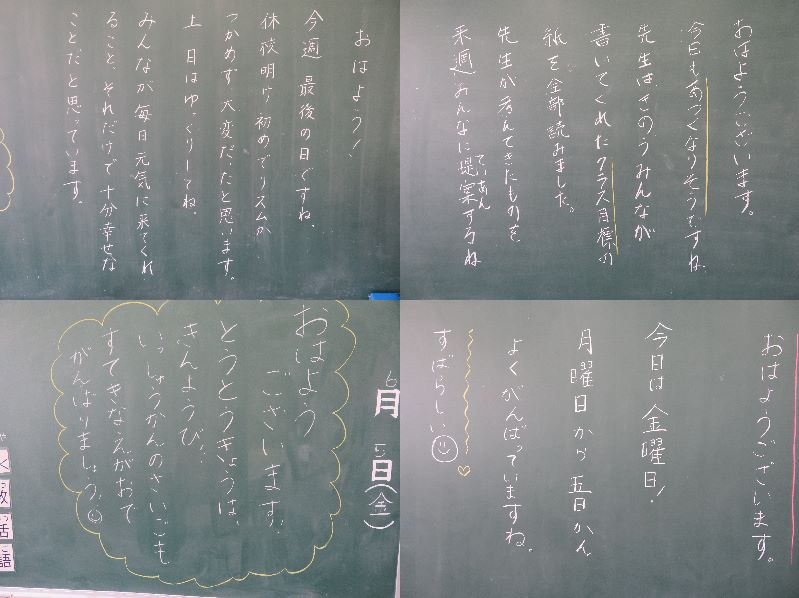 おはよう！
今週 最後の日ですね。
休校明け 初めてでリズムが
つかめず、大変だったと思います。
土 日はゆっくりしてね。
みんなが毎日元気に来てくれ
ること、それだけで十分幸せな
ことだと思っています。
おはようございます。
今日もあつくなりそうですね。
先生はきのうみんなが
書いてくれたクラス目標の
紙を全部読みました。
先生が考えてきたものを
来週みんなに提案するね
ていあん
6月5日(金)
おはよう
ございます！
とうとうきょうは、
きんようび！
いっしゅうかんのさいごも
すてきなえがおで
がんばりましょう！
く
数
活
語
おはようございます。
今日は金曜日！
月曜日から五日かん
よくがんばっていますね。
すばらしい